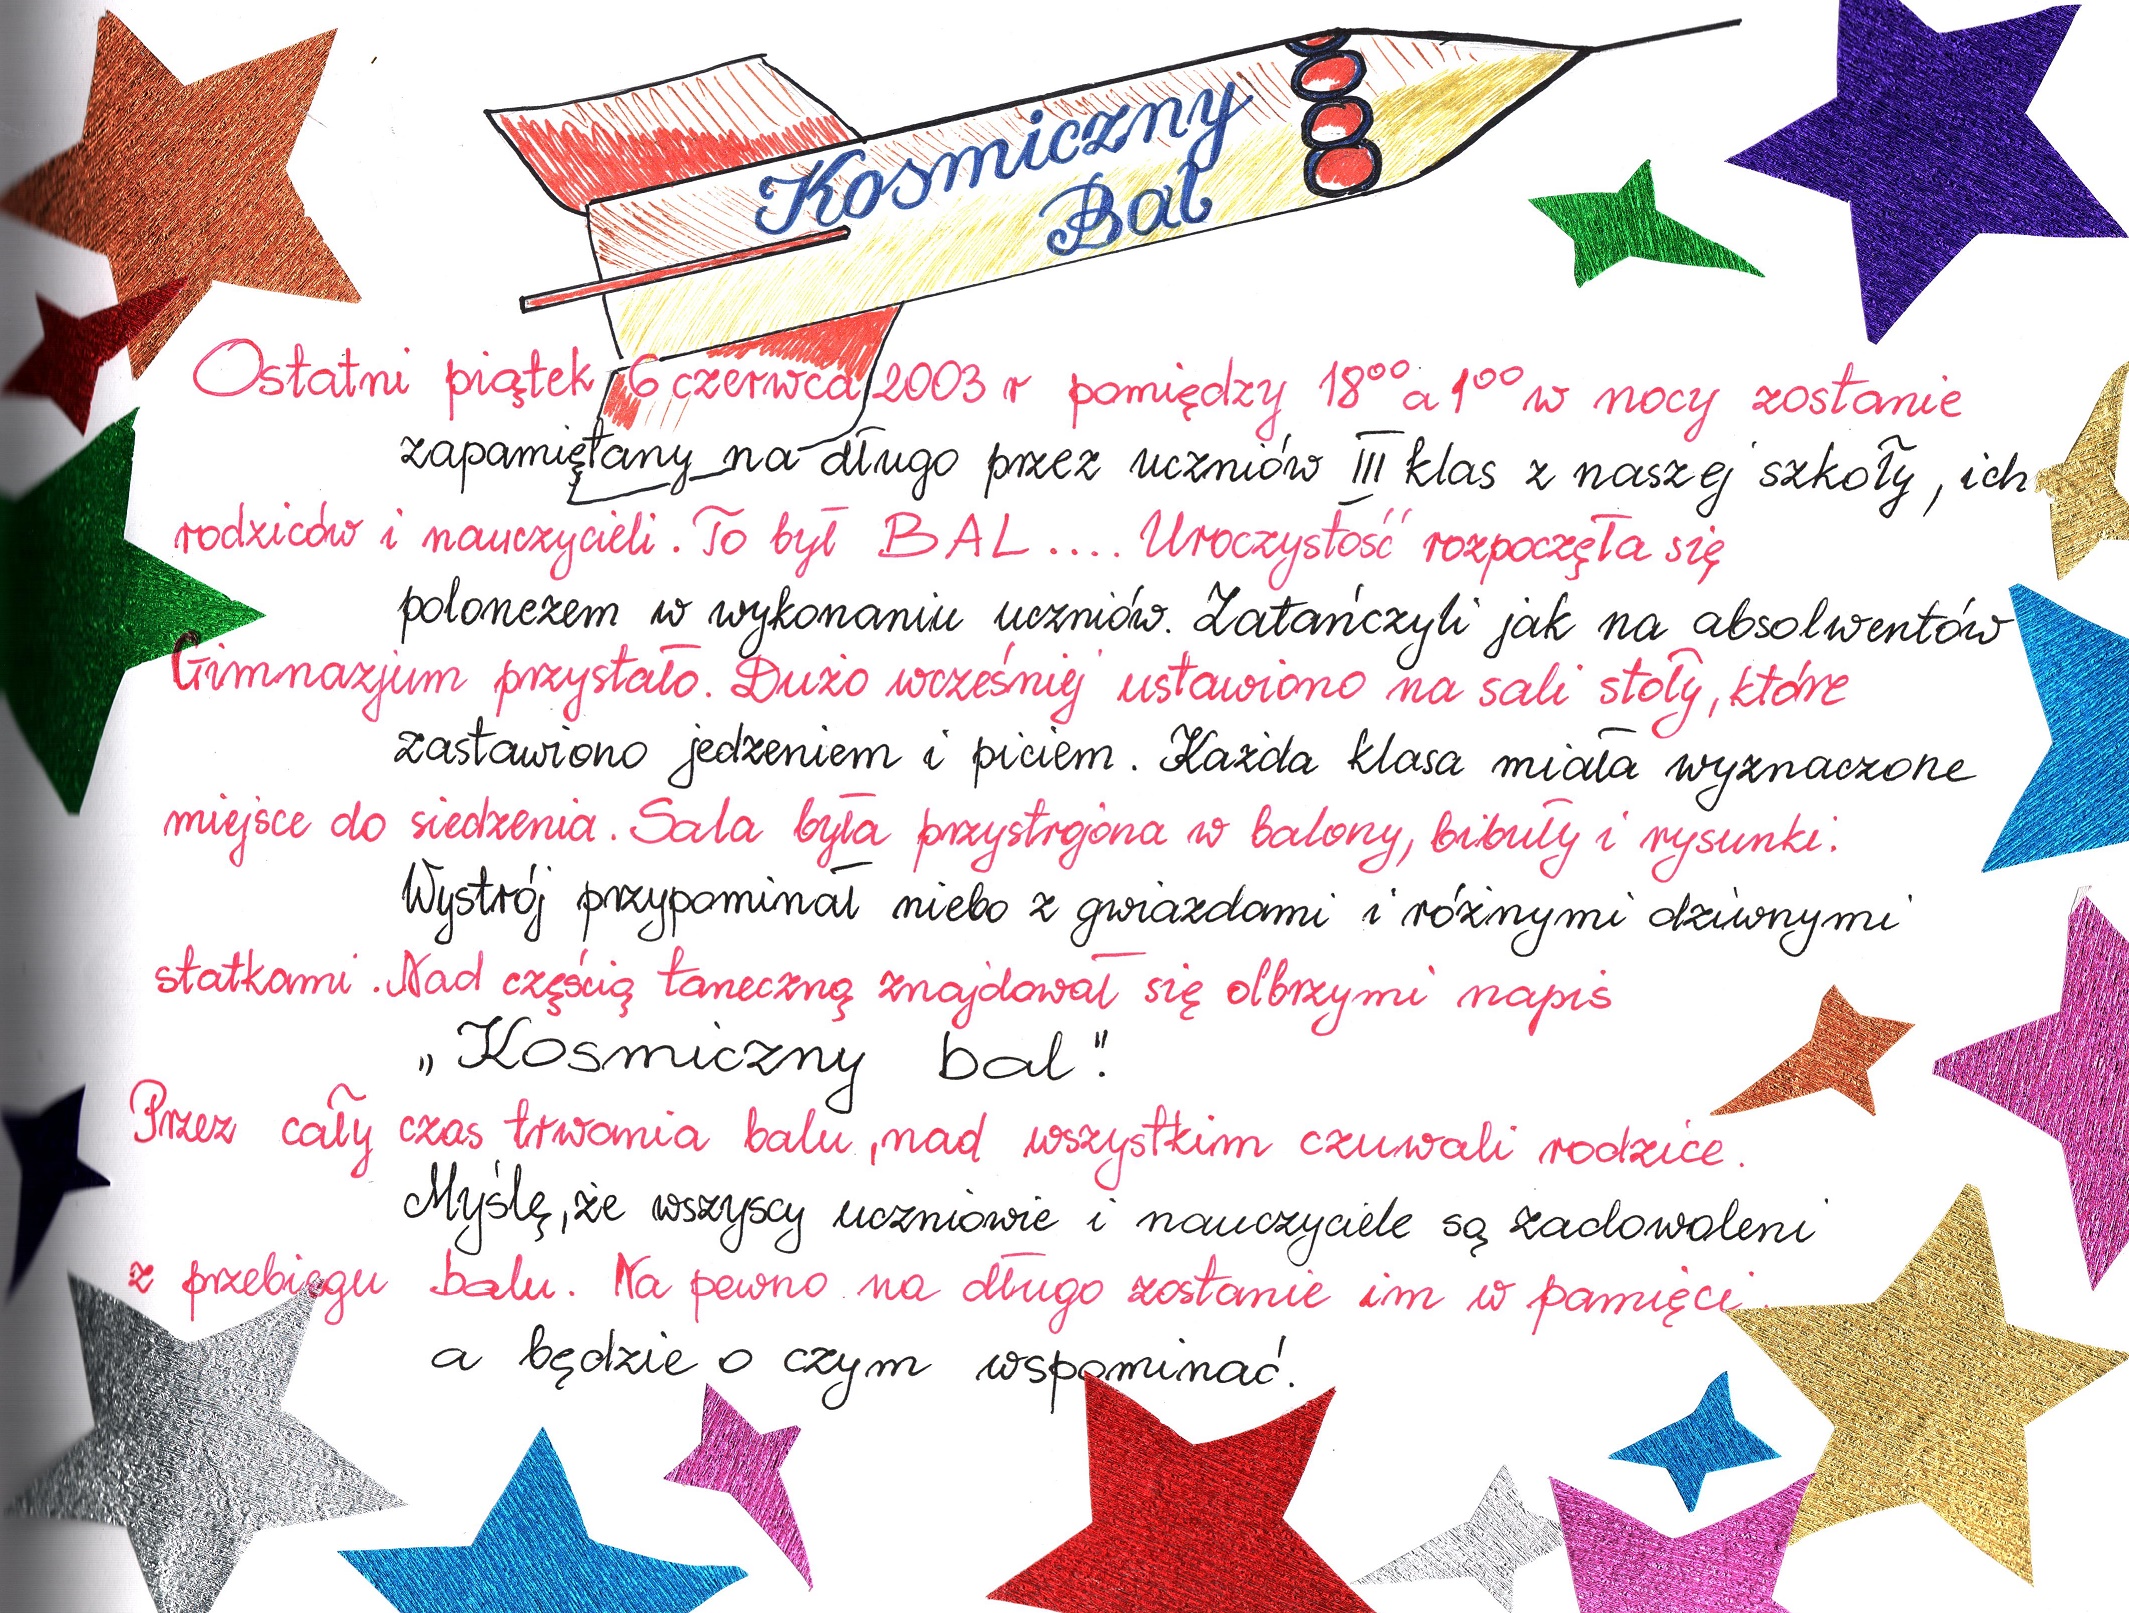 Kosmiczny
Bal
Ostatni piątek 6 czerwca 2003 r pomiędzy 18⁰⁰ a 1⁰⁰ w nocy zostanie
zapamiętany na długo przez uczniów III klas z naszej szkoły, ich
rodziców i nauczycieli. To był BAL.... Uroczystość rozpoczęła się
polonezem w wykonaniu uczniów. Zatańczyli jak na absolwentów
Gimnazjum przystało. Dużo wcześniej ustawiono na sali stoły, które
zastawiono jedzeniem i piciem. Każda klasa miała wyznaczone
miejsce do siedzenia. Sala była przystrojona w balony, bibuły i rysunki.
Wystrój przypominał niebo z gwiazdami i różnymi dziwnymi
statkami. Nad częścią taneczną znajdował się olbrzymi napis
„Kosmiczny bal".
Przez cały czas trwania balu, nad wszystkim czuwali rodzice.
Myślę, że wszyscy uczniowie i nauczyciele są zadowoleni
z przebiegu balu. Na pewno na długo zostanie im w pamięci.
a będzie o czym wspominać.